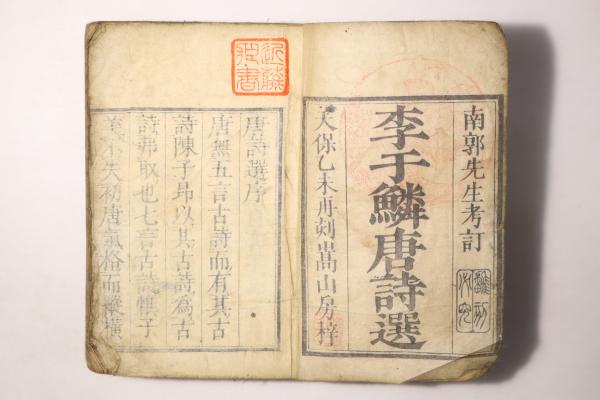 南郭先生考訂
李于鱗唐詩選
天保乙未再刻嵩山房梓
近藤
書
唐詩選序
唐無五言古詩而有其古
詩陳子昻以其古詩為古
詩弗取也七言古詩惟子
美不失初唐氣格而縱橫